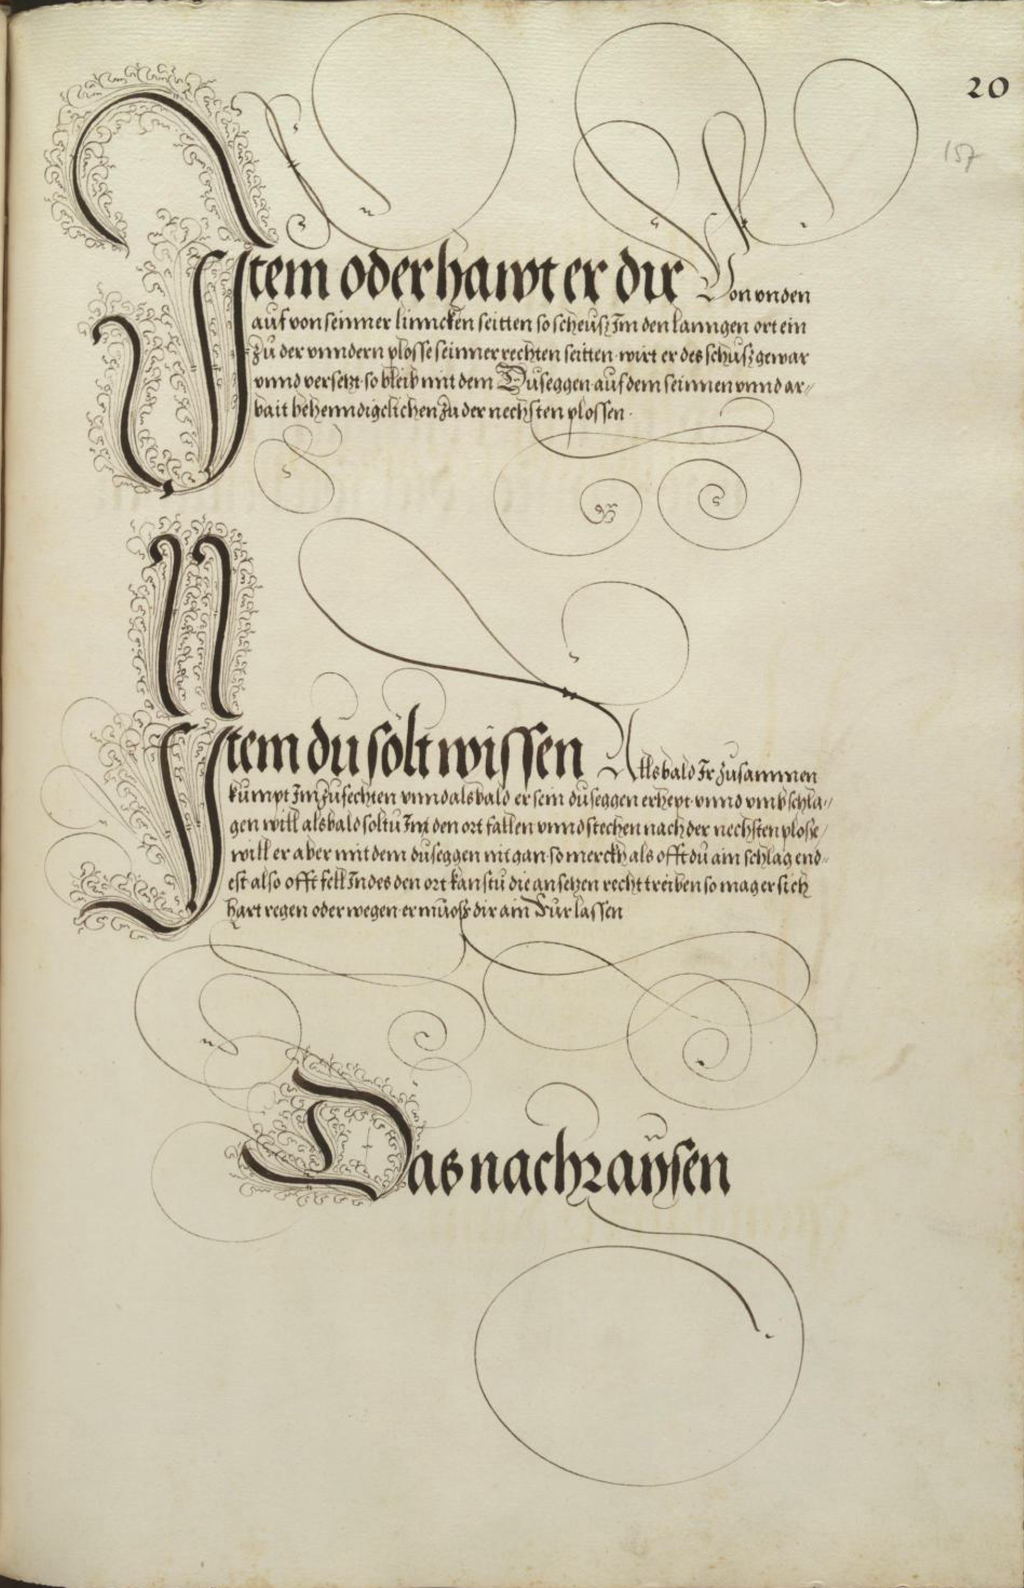 20
157
Item oder hawt er dir Von vnden
auf von seinner linncken seitten so scheusz Im den lanngen ort ein
zu der vnndern plosse seinner rechten seitten wirt er des schusz gewar
vnnd versetzt so bleib mit dem Duseggen auf dem seinnen vnnd ar-
bait behenndigclichen zu der nechsten plossen.
Item du sölt wissen Allsbald Ir zusammen
kumpt Im zufechten vnnd alsbald er sein duseggen erhept vnnd vmbschla-
gen will alsbald soltu Im den ort fallen vnnd stechen nach der nechsten plosse
will er aber mit dem duseggen nit gan so merckh als offt du ain schlag end-
est also offt fell Indes den ort kanstu die ansetzen recht treiben so mag er sich
hart regen oder wegen er müosz dir ain Fur lassen
Das nachraÿsen